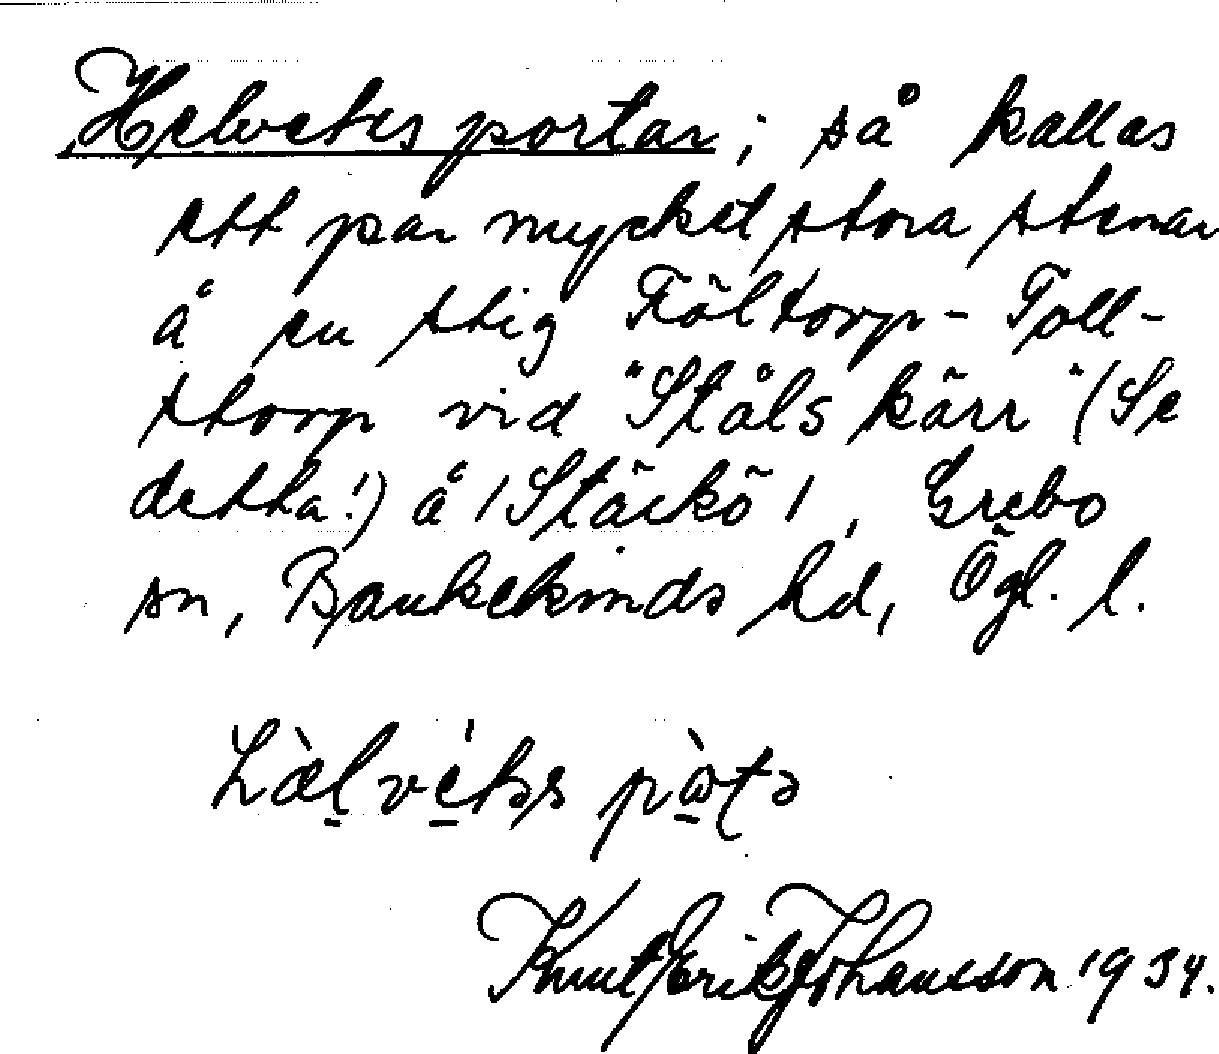 Helvetes portar; så kallas
ett par mycket stora stenar
å en stig Föltorp - Toll-
storp vid "Ståls kärr" (Se
detta!) å /Stäckö/, Grebo
sn, Bankekinds hd, Ögl. l.
hæ̀lvétəs pɷ̀ʈə
Knut Erik Johansson 1934.